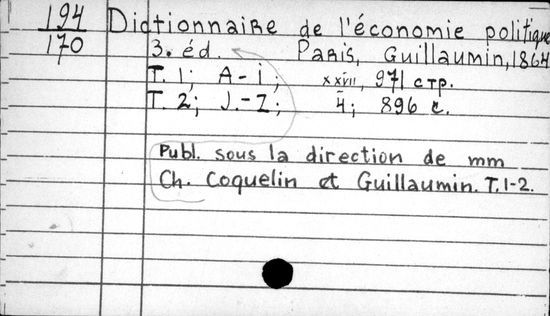 194
170
Dictionnaire de l'économie politique
3. éd. Paris, Guillaumin, 1864
T. 1; A-i; xxvii, 971 стр.
T. 2; J.-Z; 4; 896 с.
Publ. sous la direction de mm
Ch. Coquelin et Guillaumin. T. 1-2.